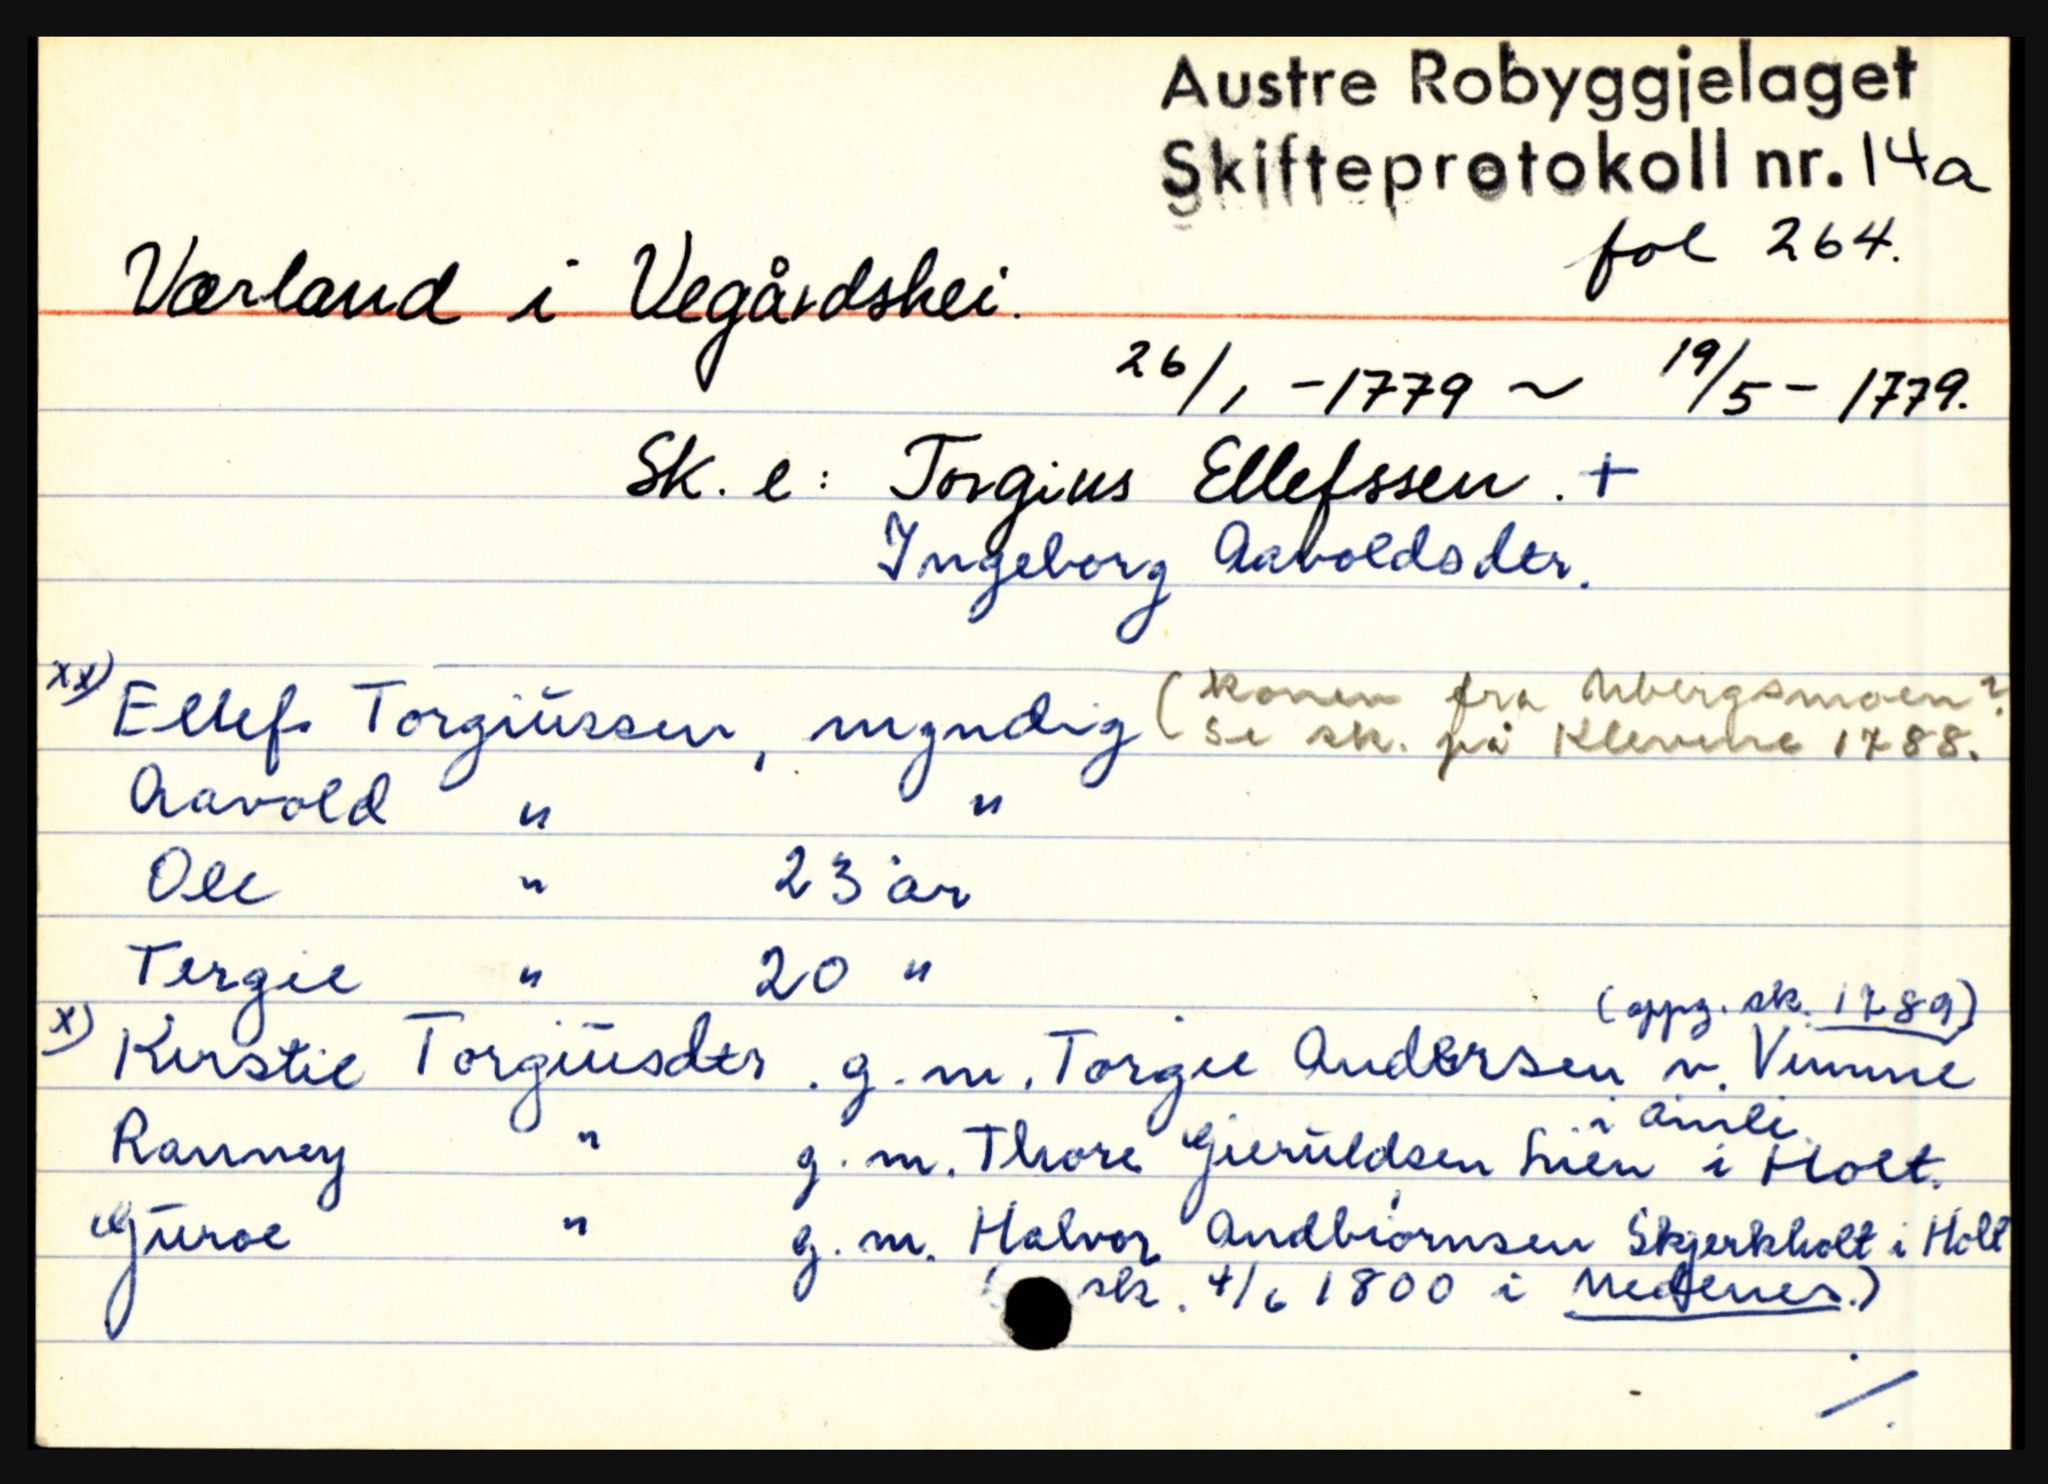 Austre Robyggjelaget
Skifteprotokoll nr. 14a
fol 264.
Værland i Vegårdshei.
26/1 - 1779 ~ 19/5 - 1779.
Sk. e: Torgius Ellefssen. +
Ingeborg Aavoldsdtr.
xx) Ellef Torgiussen, myndig (konen fra Ubergsmoen?
Se sk. på Klevene 1788.
Aavold " "
Ole " 23 år
Tergie " 20 "
(oppg. sk. 1789)
x) Kirstie Torgiusdtr. g. m. Torgie Andersen v. Vimme
i Åmli
Ranney " g. m. Thore Gieruldsen Lien i Holt.
Guroe " g. m. Halvor Andbiørnsen Skjerkholt i Holt
sk. 4/6 1800 i Nedenes.)
/.